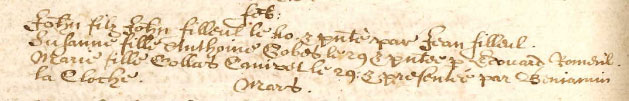 feb:
John filz John filleul le 10 & pñte par Jean filleul.
Susanne fille Anthoine Gobes le 29 & pñtee p Edouard Romeril.
Marie fille Collas Canivet le 29 & presentee par Benjamin
la Cloche.
Mars.